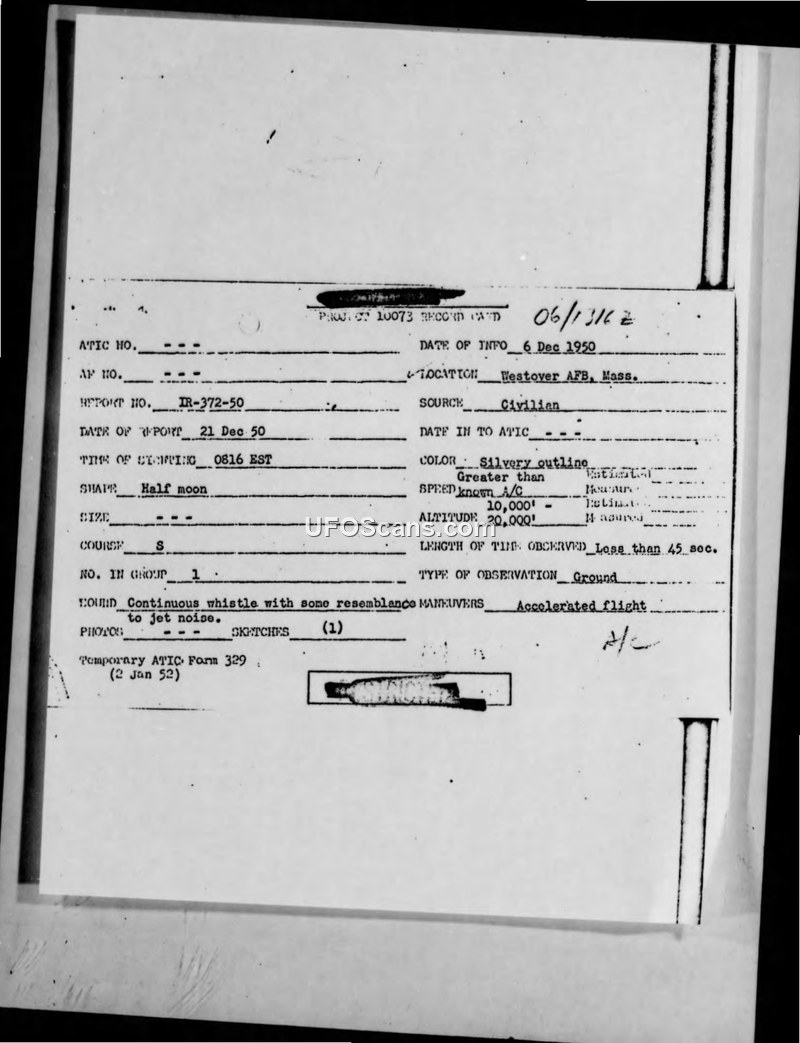 PROJECT 10073 RECORD CARD 06/1316Z
ATIC NO. - - - DATE OF INFO 6 Dec 1950
AF NO. - - - LOCATION Westover AFB, Mass.
REPORT NO. IR-372-50 SOURCE Civilian
DATE OF REPORT 21 Dec 50 DATE IN TO ATIC - - -
TIME OF SIGHTING 0816 EST COLOR Silvery outline
SHAPE Half moon SPEED Greater than known A/C Estimated Measure
SIZE - - - ALTITUDE 10,000' - 20,000' Estimate Measured
COURSE S LENGTH OF TIME OBSERVED Less than 45 sec.
NO. IN GROUP 1 TYPE OF OBSERVATION Ground
SOUND Continuous whistle with some resemblance to jet noise. MANEUVERS Accelerated flight
PHOTOS - - - SKETCHES (1) A/C
Temporary ATIC Form 329
(2 Jan 52)
UFOScans.com